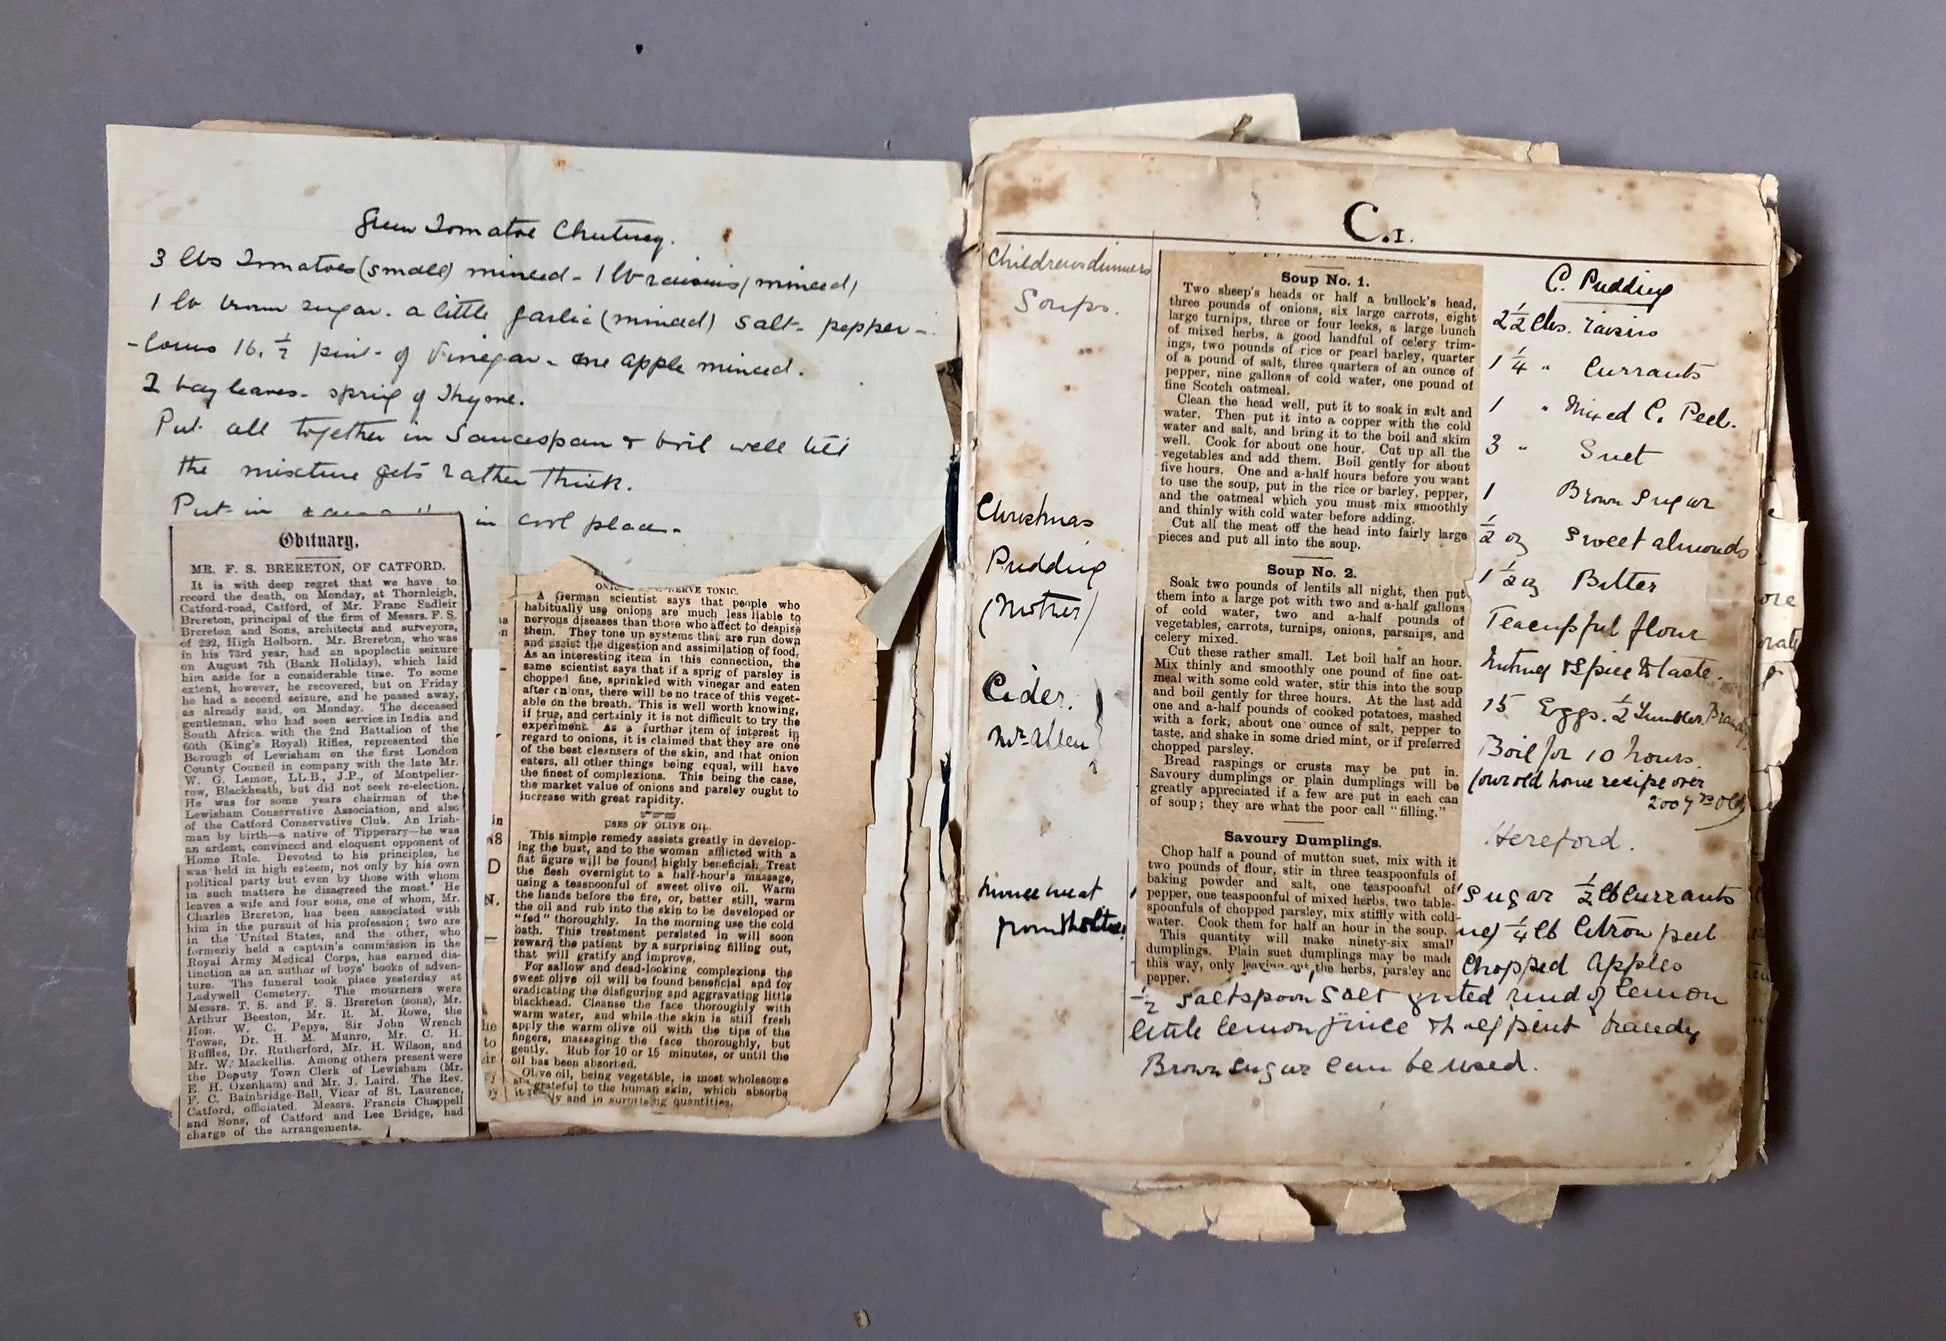 Green Tomatoe Chutney.
3 lbs Tomatoes (small) minced - 1 lb raisins (minced)
1 lb brown sugar. a little garlic (minced) salt - pepper -
16. ½ pint of Vinegar - one apple minced.
2 bay leaves - sprig of Thyme.
Put all together in Saucespan & boil well till
the mixture gets rather thick.
Put in in cool place -
Obituary.
MR. F. S. BRERETON, OF CATFORD.
It is with deep regret that we have to
record the death, on Monday, at Thornleigh,
Catford-road, Catford, of Mr. Franc Sadleir
Brereton, principal of the firm of Messrs. F. S.
Brereton and Sons, architects and surveyors,
of 292, High Holborn. Mr. Brereton, who was
in his 73rd year, had an apoplectic seizure
on August 7th (Bank Holiday), which laid
him aside for a considerable time. To some
extent, however, he recovered, but on Friday
he had a second seizure, and he passed away,
as already said, on Monday. The deceased
gentleman, who had seen service in India and
South Africa with the 2nd Battalion of the
60th (King's Royal) Rifles, represented the
Borough of Lewisham on the first London
County Council in company with the late Mr.
W. G. Lemon, LL.B., J.P., of Montpelier-
row, Blackheath, but did not seek re-election.
He was for some years chairman of the
Lewisham Conservative Association, and also
of the Catford Conservative Club. An Irish-
man by birth—a native of Tipperary—he was
an ardent, convinced and eloquent opponent of
Home Rule. Devoted to his principles, he
was held in high esteem, not only by his own
political party but even by those with whom
in such matters he disagreed the most. He
leaves a wife and four sons, one of whom, Mr.
Charles Brereton, has been associated with
him in the pursuit of his profession; two are
in the United States, and the other, who
formerly held a captain's commission in the
Royal Army Medical Corps, has earned dis-
tinction as an author of boys' books of adven-
ture. The funeral took place yesterday at
Ladywell Cemetery. The mourners were
Messrs. T. S. and F. S. Brereton (sons), Mr.
Arthur Beeston, Mr. R. M. Rowe, the
Hon. W. C. Pepys, Sir John Wrench
Towse, Dr. H. M. Munro, Mr. C. H.
Ruffles, Dr. Rutherford, Mr. H. Wilson, and
Mr. W. Mackellis. Among others present were
the Deputy Town Clerk of Lewisham (Mr.
E. H. Oxenham) and Mr. J. Laird. The Rev.
F. C. Bainbridge-Bell, Vicar of St. Laurence,
Catford, officiated. Messrs. Francis Chappell
and Sons, of Catford and Lee Bridge, had
charge of the arrangements.
NERVE TONIC.
A German scientist says that people who
habitually use onions are much less liable to
nervous diseases than those who affect to despise
them. They tone up systems that are run down
and assist the digestion and assimilation of food.
As an interesting item in this connection, the
same scientist says that if a sprig of parsley is
chopped fine, sprinkled with vinegar and eaten
after onions, there will be no trace of this veget-
able on the breath. This is well worth knowing,
if true, and certainly it is not difficult to try the
experiment. As a further item of interest in
regard to onions, it is claimed that they are one
of the best cleansers of the skin, and that onion
eaters, all other things being equal, will have
the finest of complexions. This being the case,
the market value of onions and parsley ought to
increase with great rapidity.
USES OF OLIVE OIL.
This simple remedy assists greatly in develop-
ing the bust, and to the woman afflicted with a
flat figure will be found highly beneficial. Treat
the flesh overnight to a half-hour's massage,
using a teaspoonful of sweet olive oil. Warm
the hands before the fire, or, better still, warm
the oil and rub into the skin to be developed or
"fed" thoroughly. In the morning use the cold
bath. This treatment persisted in will soon
reward the patient by a surprising filling out,
that will gratify and improve.
For sallow and dead-looking complexions the
sweet olive oil will be found beneficial and for
eradicating the disfiguring and aggravating little
blackhead. Cleanse the face thoroughly with
warm water, and while the skin is still fresh
apply the warm olive oil with the tips of the
fingers, massaging the face thoroughly, but
gently. Rub for 10 or 15 minutes, or until the
oil has been absorbed.
Olive oil, being vegetable, is most wholesome
and grateful to the human skin, which absorbs
it readily and in surprising quantities.
C.1.
Childrens dinners
Soups.
Christmas
Pudding
(Mother)
Cider.
Mr Allen
Mincemeat
from
Soup No. 1.
Two sheep's heads or half a bullock's head,
three pounds of onions, six large carrots, eight
large turnips, three or four leeks, a large bunch
of mixed herbs, a good handful of celery trim-
mings, two pounds of rice or pearl barley, quarter
of a pound of salt, three quarters of an ounce of
pepper, nine gallons of cold water, one pound of
fine Scotch oatmeal.
Clean the head well, put it to soak in salt and
water. Then put it into a copper with the cold
water and salt, and bring it to the boil and skim
well. Cook for about one hour. Cut up all the
vegetables and add them. Boil gently for about
five hours. One and a-half hours before you want
to use the soup, put in the rice or barley, pepper,
and the oatmeal which you must mix smoothly
and thinly with cold water before adding.
Cut all the meat off the head into fairly large
pieces and put all into the soup.
Soup No. 2.
Soak two pounds of lentils all night, then put
them into a large pot with two and a-half gallons
of cold water, two and a-half pounds of
vegetables, carrots, turnips, onions, parsnips, and
celery mixed.
Cut these rather small. Let boil half an hour.
Mix thinly and smoothly one pound of fine oat-
meal with some cold water, stir this into the soup
and boil gently for three hours. At the last add
one and a-half pounds of cooked potatoes, mashed
with a fork, about one ounce of salt, pepper to
taste, and shake in some dried mint, or if preferred
chopped parsley.
Bread raspings or crusts may be put in.
Savoury dumplings or plain dumplings will be
greatly appreciated if a few are put in each can
of soup; they are what the poor call "filling."
Savoury Dumplings.
Chop half a pound of mutton suet, mix with it
two pounds of flour, stir in three teaspoonfuls of
baking powder and salt, one teaspoonful of
pepper, one teaspoonful of mixed herbs, two table-
spoonfuls of chopped parsley, mix stiffly with cold
water. Cook them for half an hour in the soup.
This quantity will make ninety-six small
dumplings. Plain suet dumplings may be made
this way, only leaving out the herbs, parsley and
pepper.
C. Pudding
2½ lbs. raisins
1¼ " Currants
1 " Mixed C. Peel.
3 " Suet
1 Brown Sugar
½ oz Sweet almonds
1½ oz Bitter
Teacupful flour
Nutmeg & Spice to taste.
15 Eggs. ½ Tumbler Brandy
Boil for 10 hours.
(our old home recipe over
200 yrs old)
Hereford.
Sugar ½ lb Currants
¼ lb Citron peel
Chopped Apples
½ saltspoon Salt grated rind of lemon
little lemon juice & half pint brandy
Brown sugar can be used.